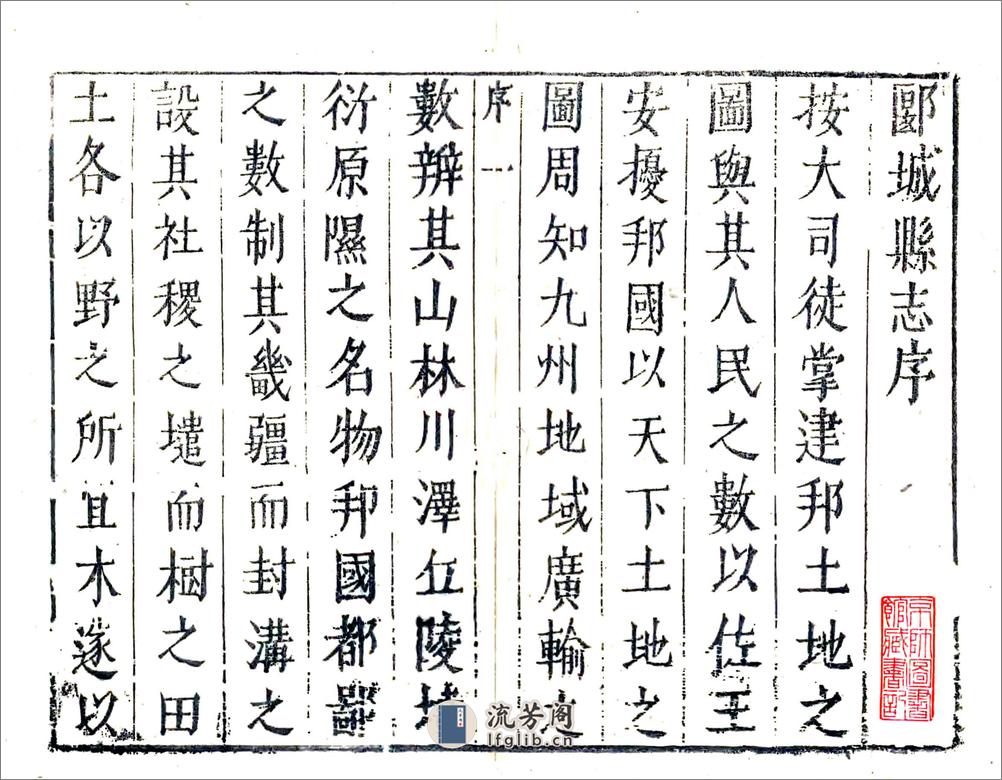 郾城縣志序
按大司徒掌建邦土地之
圖與其人民之數以佐王
安擾邦國以天下土地之
圖周知九州地域廣輸之
序 一
數辨其山林川澤丘陵墳
衍原隰之名物邦國都鄙
之數制其畿疆而封溝之
設其社稷之壝而樹之田
土各以野之所宜木遂以
京師圖書
館藏書記
流芳阁
lfglib.cn